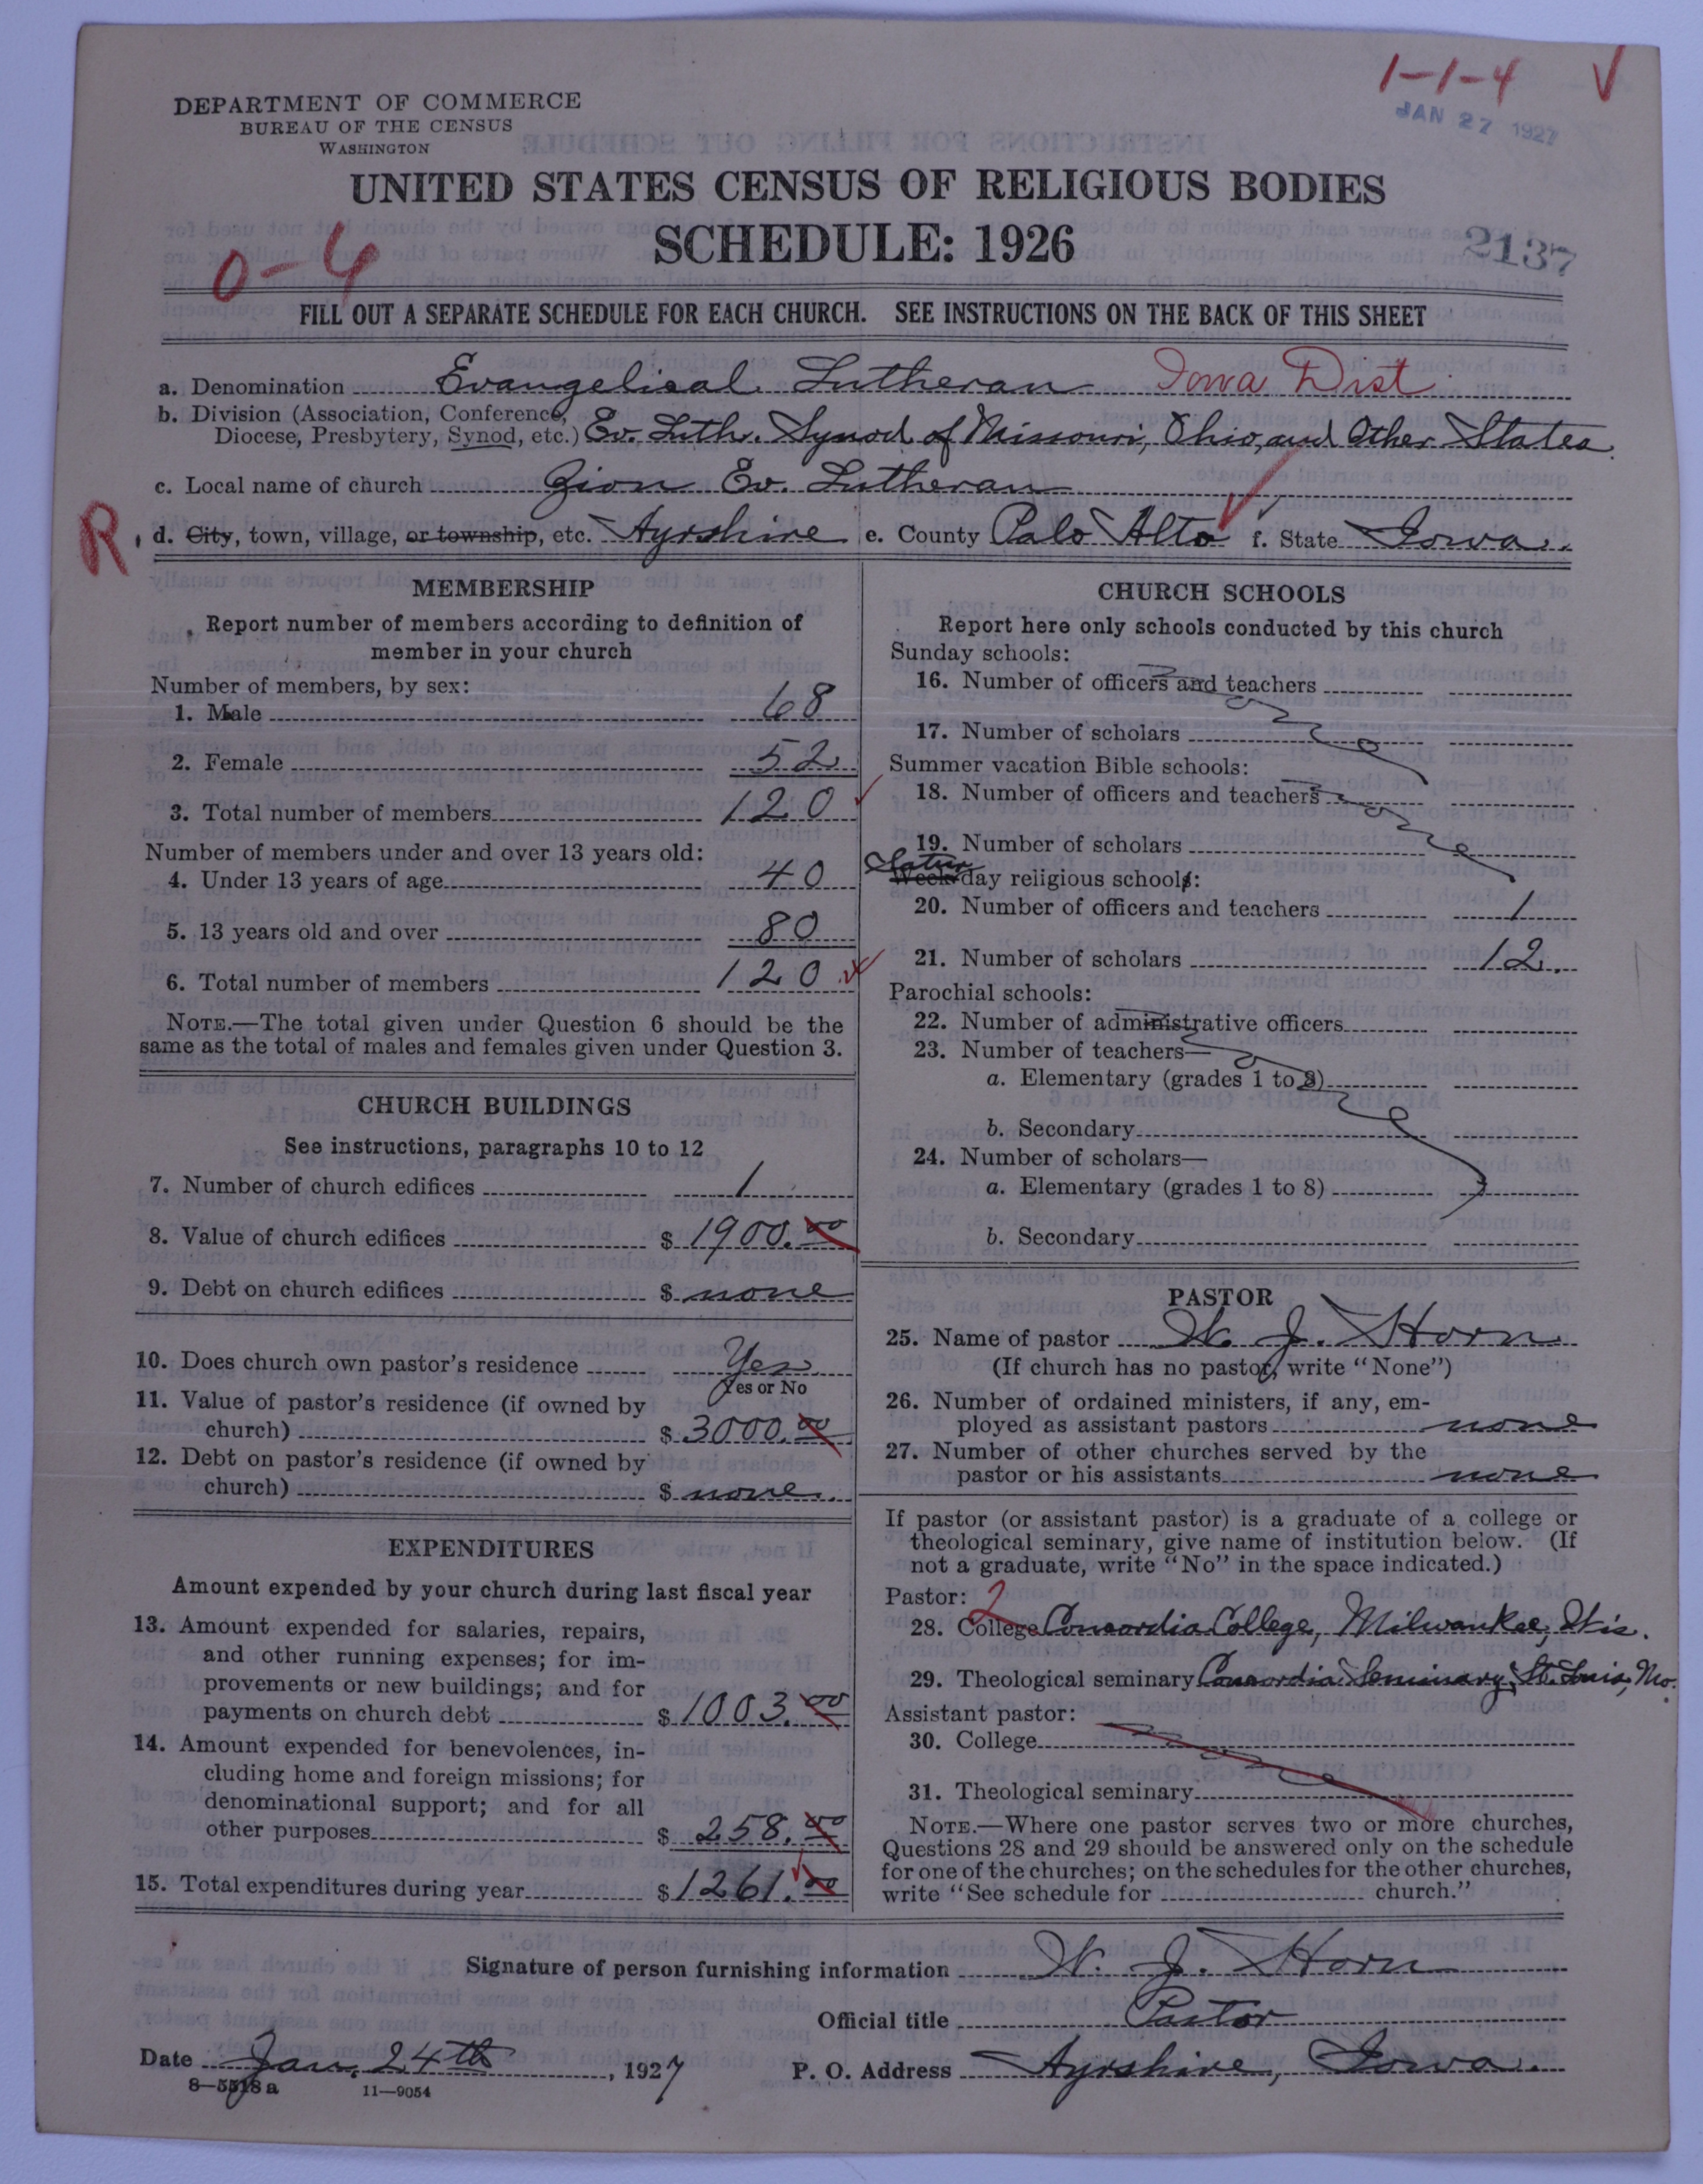 1-1-4 √
JAN 27 1927
DEPARTMENT OF COMMERCE
BUREAU OF THE CENSUS
WASHINGTON
UNITED STATES CENSUS OF RELIGIOUS BODIES
SCHEDULE: 1926
2137
0-4
FILL OUT A SEPARATE SCHEDULE FOR EACH CHURCH. SEE INSTRUCTIONS ON THE BACK OF THIS SHEET
a. Denomination Evangelical Lutheran Iowa Dist.
b. Division (Association, Conference,
Diocese, Presbytery, Synod, etc.) Ev. Luth. Synod of Missouri, Ohio, and Other States.
c. Local name of church Zion Ev. Lutheran
R
d. City, town, village, or township, etc. Ayrshire e. County Palo Alto f. State Iowa.
MEMBERSHIP
Report number of members according to definition of
member in your church
Number of members, by sex:
1. Male 68
2. Female 52
3. Total number of members 120
Number of members under and over 13 years old:
4. Under 13 years of age 40
5. 13 years old and over 80
6. Total number of members 120
NOTE.—The total given under Question 6 should be the
same as the total of males and females given under Question 3.
CHURCH BUILDINGS
See instructions, paragraphs 10 to 12
7. Number of church edifices 1
8. Value of church edifices $ 1900.00
9. Debt on church edifices $ none
10. Does church own pastor's residence Yes
Yes or No
11. Value of pastor's residence (if owned by
church) $ 3000.00
12. Debt on pastor's residence (if owned by
church) $ none.
EXPENDITURES
Amount expended by your church during last fiscal year
13. Amount expended for salaries, repairs,
and other running expenses; for im-
provements or new buildings; and for
payments on church debt $ 1003.00
14. Amount expended for benevolences, in-
cluding home and foreign missions; for
denominational support; and for all
other purposes $ 258.00
15. Total expenditures during year $ 1261.00
CHURCH SCHOOLS
Report here only schools conducted by this church
Sunday schools:
16. Number of officers and teachers
none
17. Number of scholars
Summer vacation Bible schools:
18. Number of officers and teachers
none
19. Number of scholars
Satur
Week-day religious schools:
20. Number of officers and teachers 1
21. Number of scholars 12.
Parochial schools:
22. Number of administrative officers
none
23. Number of teachers—
a. Elementary (grades 1 to 8)
b. Secondary
24. Number of scholars—
a. Elementary (grades 1 to 8)
b. Secondary
PASTOR
25. Name of pastor W. J. Horn
(If church has no pastor, write "None")
26. Number of ordained ministers, if any, em-
ployed as assistant pastors none
27. Number of other churches served by the
pastor or his assistants none
If pastor (or assistant pastor) is a graduate of a college or
theological seminary, give name of institution below. (If
not a graduate, write "No" in the space indicated.)
Pastor: 2
28. College Concordia College, Milwaukee, Wis.
29. Theological seminary Concordia Seminary, St. Louis, Mo.
Assistant pastor:
30. College
none
31. Theological seminary
NOTE.—Where one pastor serves two or more churches,
Questions 28 and 29 should be answered only on the schedule
for one of the churches; on the schedules for the other churches,
write "See schedule for church."
Signature of person furnishing information W. J. Horn
Official title Pastor
Date Jan. 24th, 1927 P. O. Address Ayrshire, Iowa.
8—5518 a 11—9054